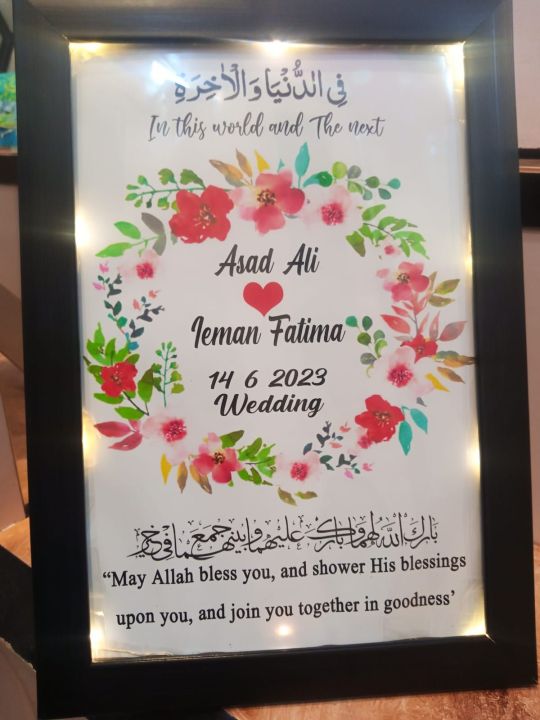 فِي الدُّنْيَا وَالْآخِرَةِ
In this world and The next
Asad Ali
Ieman Fatima
14 6 2023
Wedding
بارك الله لهما وبارك عليهما وجمع بينهما في خير
“May Allah bless you, and shower His blessings
upon you, and join you together in goodness’